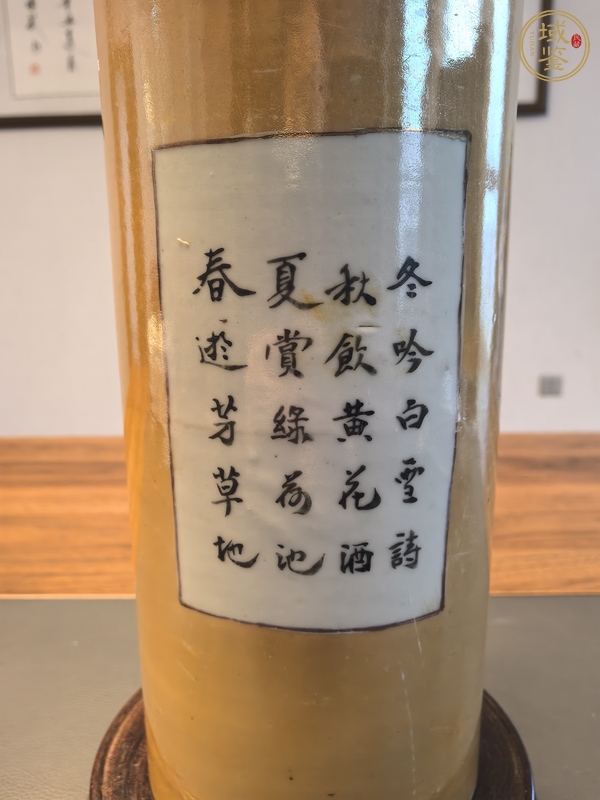 春遊芳草地
夏賞綠荷池
秋飲黃花酒
冬吟白雪詩
域鉴